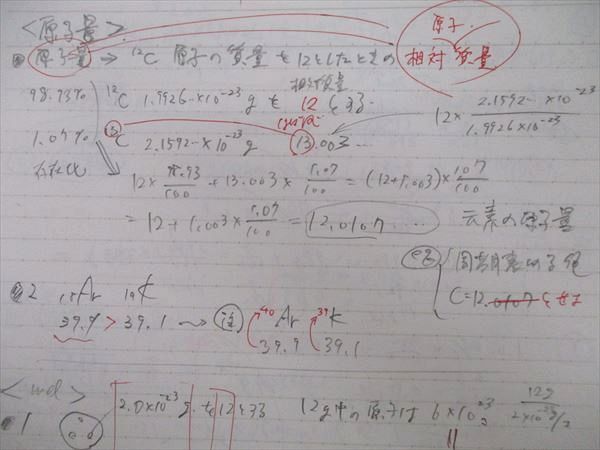 <原子量>
原子量 ⇒ ¹²C 原子の質量を12としたときの 原子 相対質量
98.93% ¹²C 1.9926…×10⁻²³ g を 12 とする 相対質量
12× 2.1592…×10⁻²³ / 1.9926×10⁻²³
1.07% ¹³C 2.1592…×10⁻²³ g 13.003…
存在比
12×98.93/100 + 13.003×1.07/100 = (12+1.003)×1.07/100
= 12+1.003×1.07/100 = 12.0107…… 元素の原子量
C=12.0107とせよ
2 ₁₈Ar ₁₉K
39.9 > 39.1 ～→ 注 ⁴⁰Ar ³⁹K
39.9 39.1
<mol>
1 2.0×10⁻²³ g を 12とする 12g中の原子は 6×10²³コ 12g / 2×10⁻²³g/コ